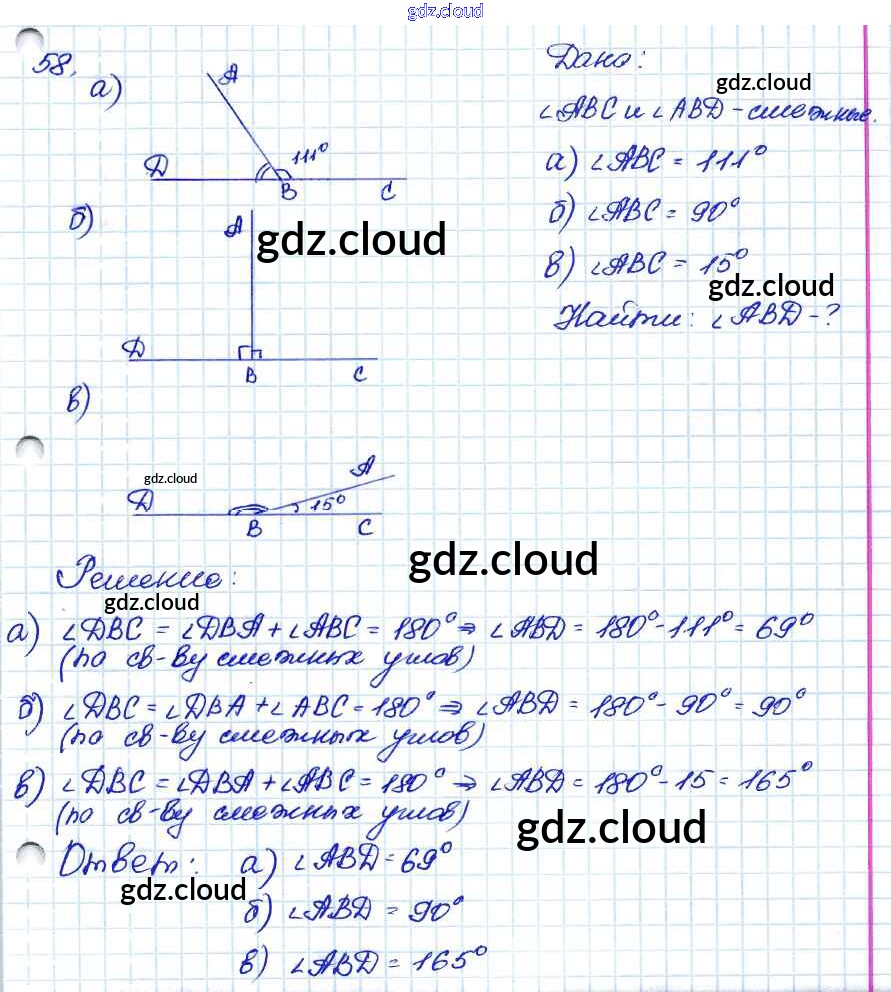 gdz.cloud
58.
а)
А
111°
D
В
С
Дано:
gdz.cloud
∠ABC и ∠ABD - смежные.
а) ∠ABC = 111°
б) ∠ABC = 90°
в) ∠ABC = 15°
gdz.cloud
Найти: ∠ABD - ?
б)
А
gdz.cloud
D
В
С
в)
gdz.cloud
А
D
15°
В
С
gdz.cloud
Решение:
gdz.cloud
а) ∠DBC = ∠DBA + ∠ABC = 180° ⇒ ∠ABD = 180° - 111° = 69°
(по св-ву смежных углов)
б) ∠DBC = ∠DBA + ∠ABC = 180° ⇒ ∠ABD = 180° - 90° = 90°
(по св-ву смежных углов)
в) ∠DBC = ∠DBA + ∠ABC = 180° ⇒ ∠ABD = 180° - 15 = 165°
(по св-ву смежных углов)
gdz.cloud
Ответ: а) ∠ABD = 69°
gdz.cloud
б) ∠ABD = 90°
в) ∠ABD = 165°